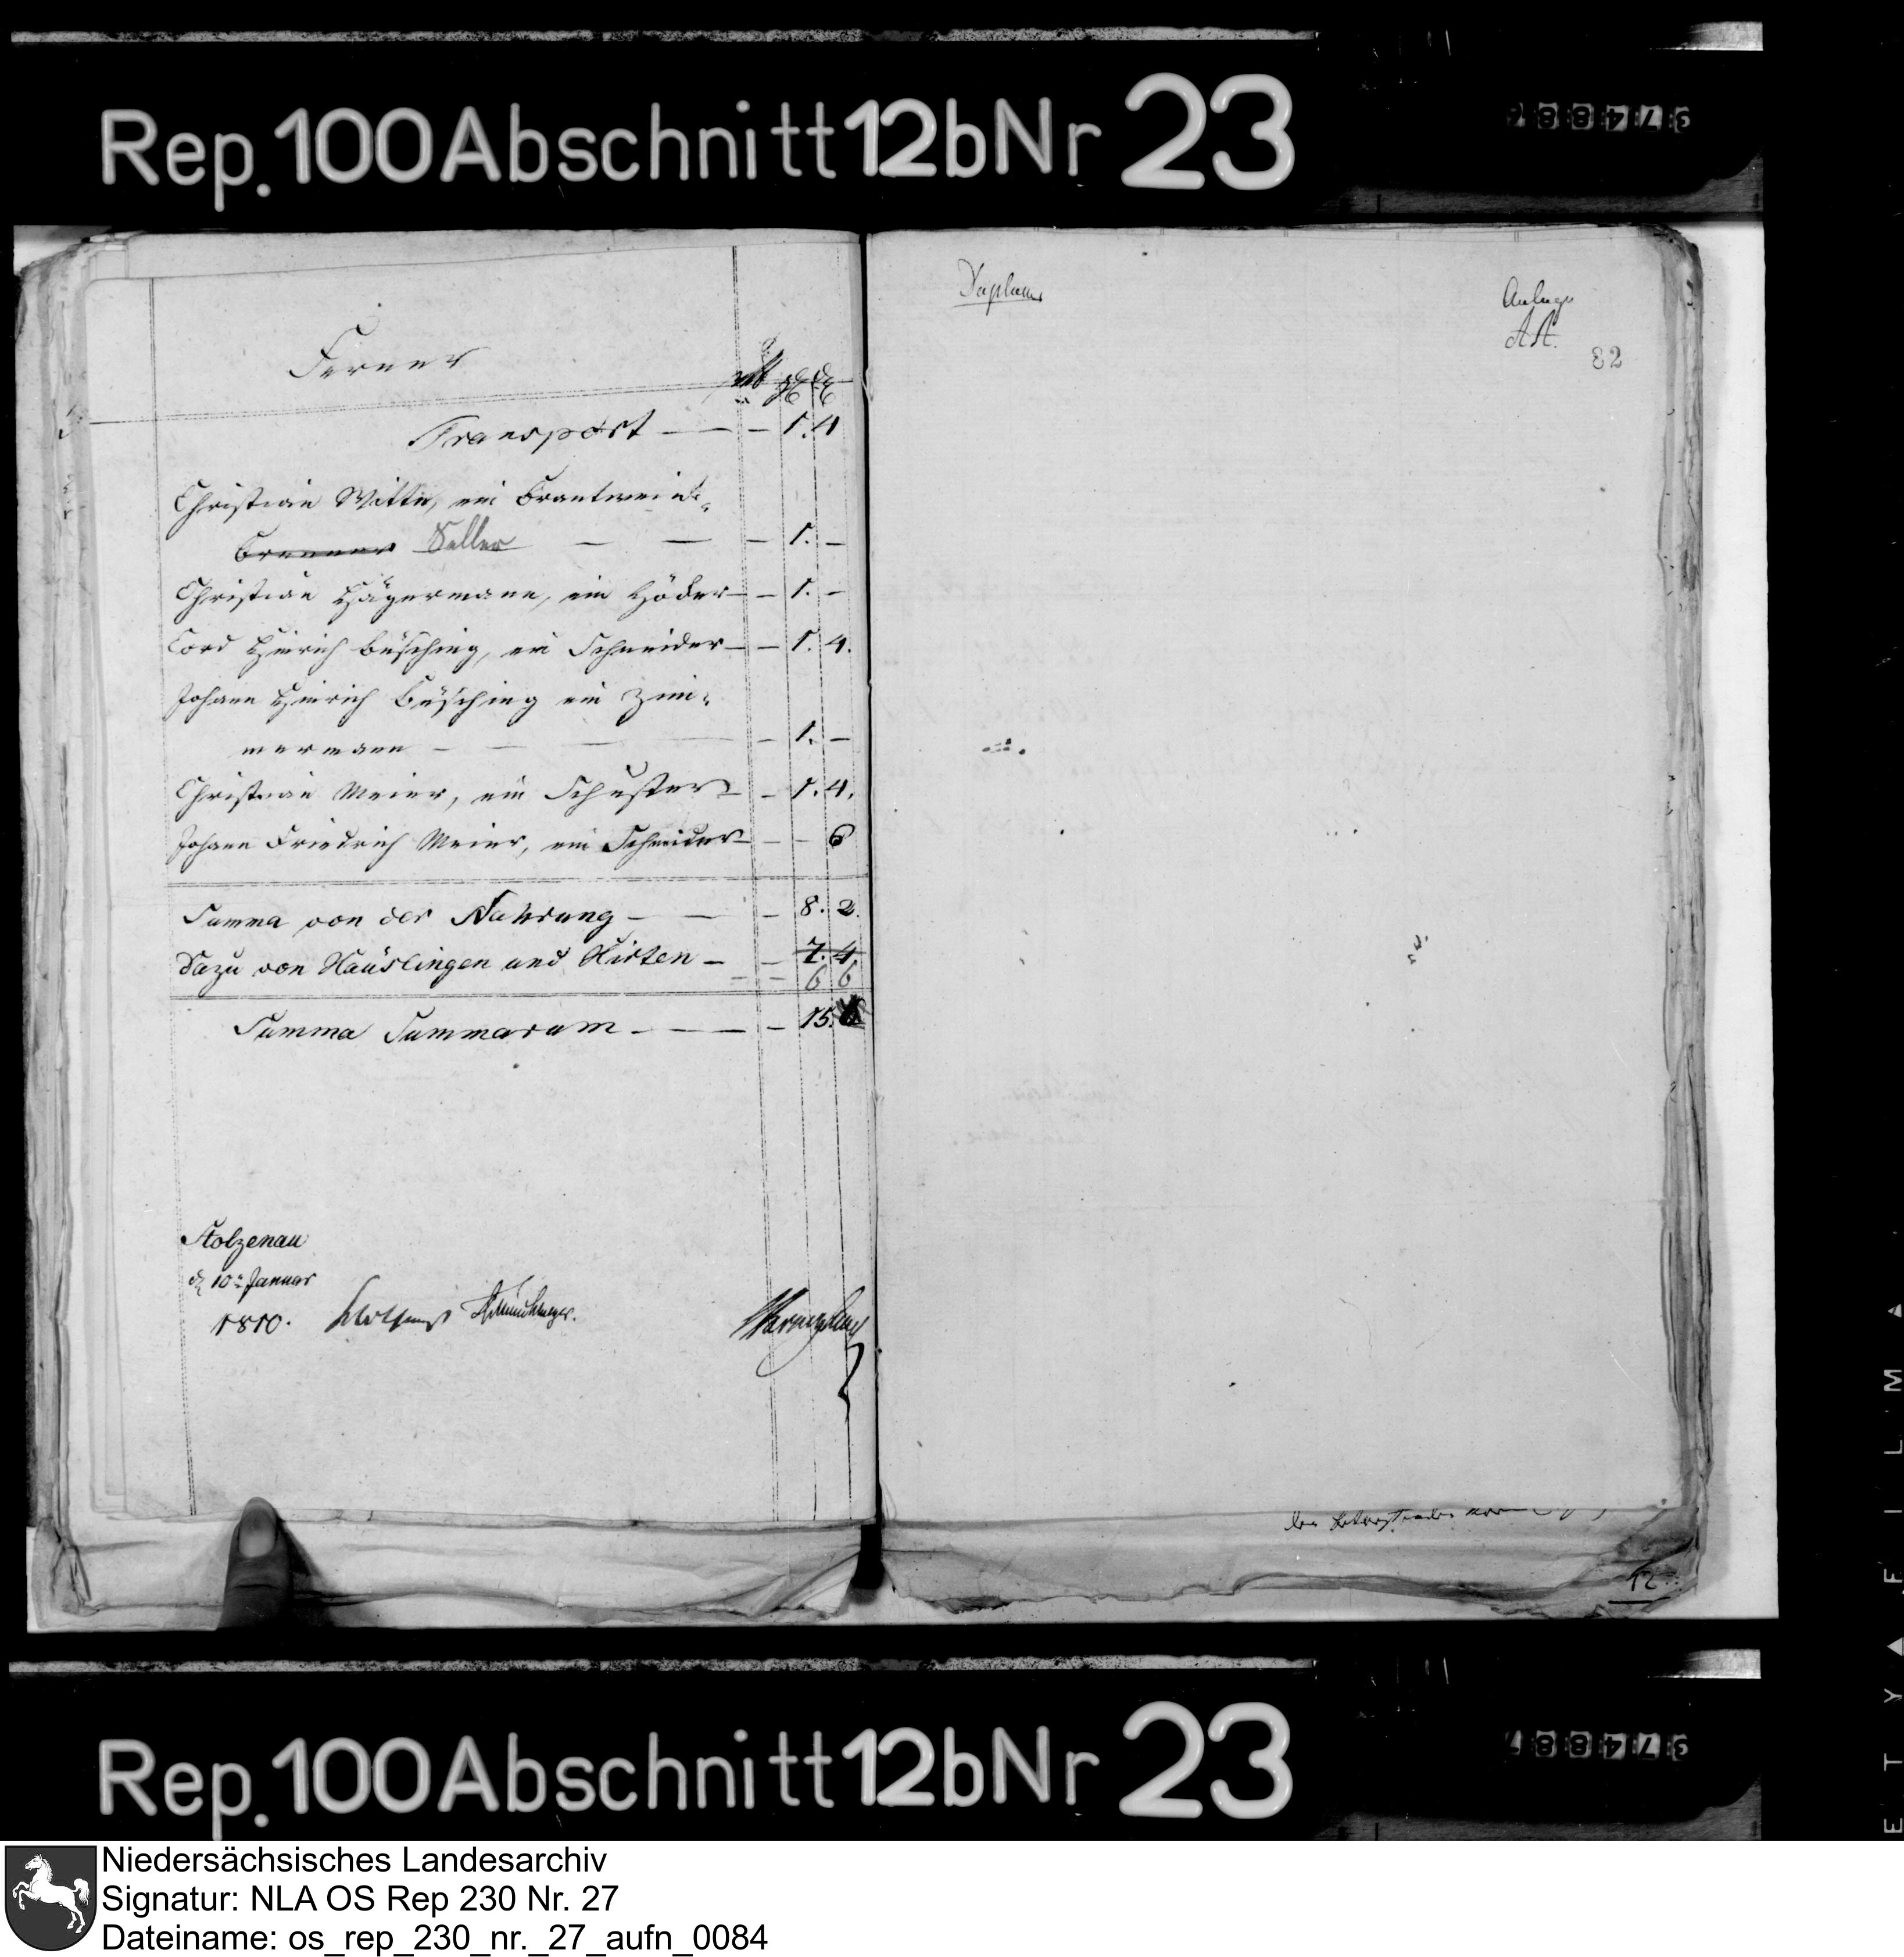 Rep. 100 Abschnitt 12b Nr 23
Ferner
Transport — — — 1. 4
Christian Witte, ein Brantwein-
Brenner Seller — — — 1. —
Christian Hägermann, ein Höcker — — 1. —
Cord Hinrich Büsching, ein Schneider — — 1. 4.
Johann Hinrich Büsching ein Zim-
mermann — — — — — 1. —
Christian Meier, ein Schuster — — 1. 4.
Johann Friedrich Meier, ein Schneider — — — 6
Summa von der Nahrung — — — 8. 2.
Dazu von Häuslingen und Hirten — — 7. 4
— — 6 6
Summa Summarum — — — — 15.
Stolzenau
d 10n Januar
1810.
Anlage
AA.
82
12
Rep. 100 Abschnitt 12b Nr 23
Niedersächsisches Landesarchiv
Signatur: NLA OS Rep 230 Nr. 27
Dateiname: os_rep_230_nr._27_aufn_0084